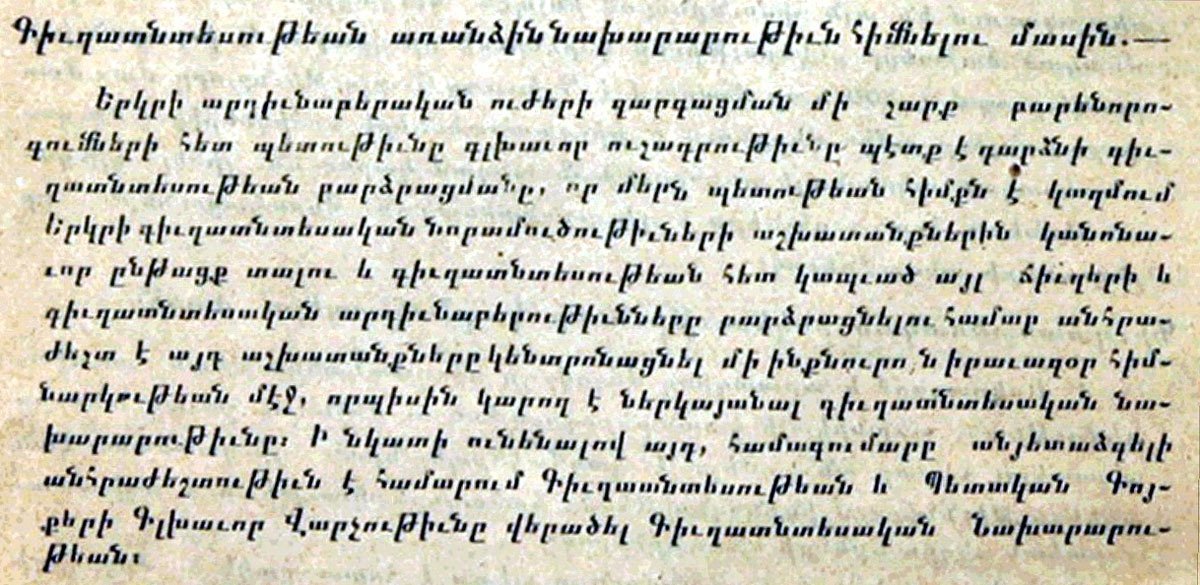 Գիւղատնտեսութեան առանձին նախարարութիւն հիմնելու մասին.—
Երկրի արդիւնաբերական ուժերի զարգացման մի շարք բարենորո-
գումների հետ պետութիւնը գլխաւոր ուշադրութիւնը պէտք է դարձնի գիւ-
ղատնտեսութեան բարձրացմանը, որ մերն պետութեան հիմքն է կազմում
Երկրի գիւղատնտեսական նորամուծութիւնների աշխատանքներին կանոնա-
ւոր ընթացք տալու և գիւղատնտեսութեան հետ կապւած այլ ճիւղերի և
գիւղատնտեսական արդիւնաբերութիւնները բարձրացնելու համար անհրա-
ժեշտ է այդ աշխատանքները կենտրոնացնել մի ինքնուրոյն իրաւազօր հիմ-
նարկութեան մէջ, որպիսին կարող է ներկայանալ գիւղատնտեսական նա-
խարարութիւնը։ Ի նկատի ունենալով այդ, համագումարը անյետաձգելի
անհրաժեշտութիւն է համարում Գիւղատնտեսութեան և Պետական Գոյ-
քերի Գլխաւոր Վարչութիւնը վերածել Գիւղատնտեսական Նախարարու-
թեան։